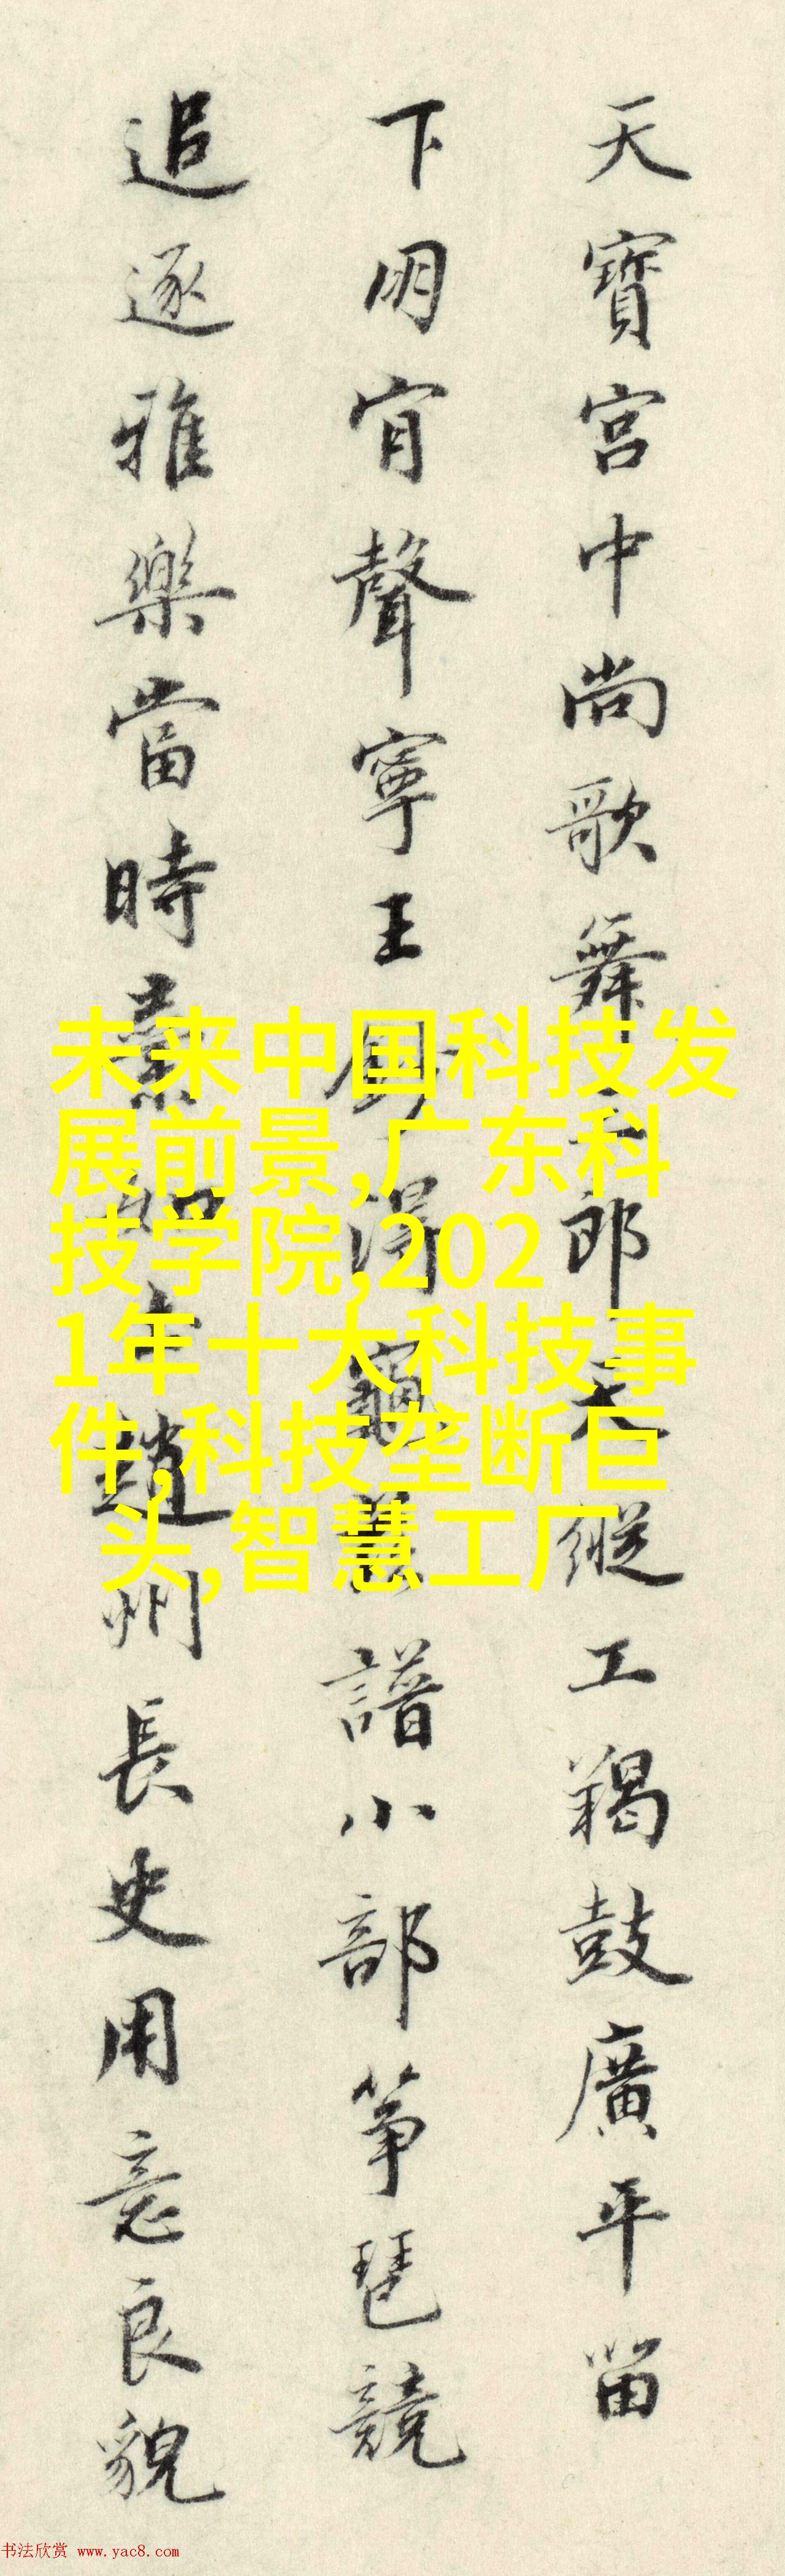 天寶宮中尚歌舞郎天縱工羯鼓廣平留
下朋肎聲寧王得龜茲譜小部箏琶競
追逐雅樂當時棄如土趙州長史用意良貌
未来中国科技发
展前景,广东科
技学院,202
1年十大科技事
件,科技垄断巨
头,智慧工厂
书法欣赏 www.yac8.com